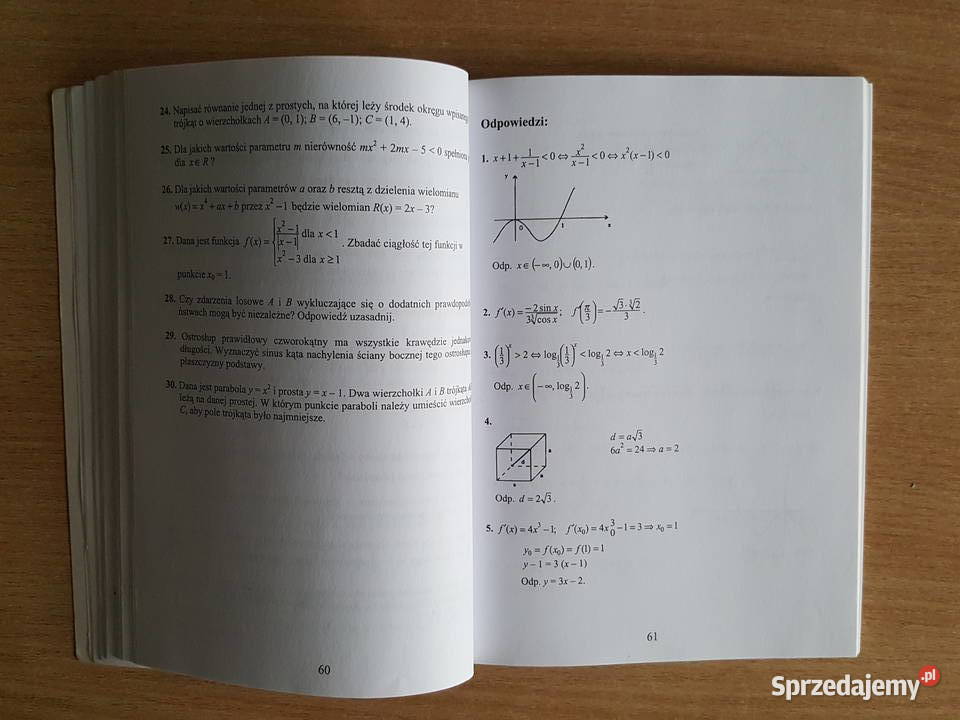 24. Napisać równanie jednej z prostych, na której leży środek okręgu
trójkąt o wierzchołkach A = (0, 1); B = (6, −1); C = (1, 4).
25. Dla jakich wartości parametru m nierówność mx² + 2mx − 5 < 0
dla x∈R ?
26. Dla jakich wartości parametrów a oraz b resztą z dzielenia wielomianu
w(x) = x⁴ + ax + b przez x² − 1 będzie wielomian R(x) = 2x − 3?
27. Dana jest funkcja f(x) = { (x² − 1)/|x − 1| dla x < 1
x² − 3 dla x ≥ 1 . Zbadać ciągłość tej funkcji w
punkcie x₀ = 1.
28. Czy zdarzenia losowe A i B wykluczające się o dodatnich
ństwach mogą być niezależne? Odpowiedź uzasadnij.
29. Ostrosłup prawidłowy czworokątny ma wszystkie krawędzie
długości. Wyznaczyć sinus kąta nachylenia ściany bocznej tego
płaszczyzny podstawy.
30. Dana jest parabola y = x² i prosta y = x − 1. Dwa wierzchołki A i B trójkąta
leżą na danej prostej. W którym punkcie paraboli należy umieścić
C, aby pole trójkąta było najmniejsze.
60
Odpowiedzi:
1. x + 1 + 1/(x−1) < 0 ⇔ x²/(x−1) < 0 ⇔ x²(x−1) < 0
y
0 1 x
Odp. x∈(−∞, 0)∪(0, 1).
2. f′(x) = −2 sin x / 3∛cos x; f′(π/3) = − √3·∛2 / 3 .
3. (1/3)ˣ > 2 ⇔ log_{1/3}(1/3)ˣ < log_{1/3} 2 ⇔ x < log_{1/3} 2
Odp. x∈(−∞, log_{1/3} 2).
4.
d = a√3
6a² = 24 ⇒ a = 2
d
a
a
Odp. d = 2√3 .
5. f′(x) = 4x³ − 1; f′(x₀) = 4x₀³ − 1 = 3 ⇒ x₀ = 1
y₀ = f(x₀) = f(1) = 1
y − 1 = 3 (x − 1)
Odp. y = 3x − 2.
61
Sprzedajemy.pl